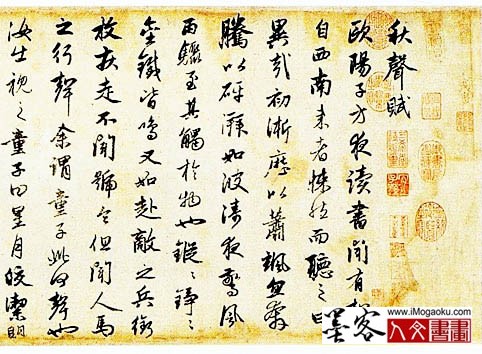 秋聲賦
歐陽子方夜讀書聞有聲
自西南来者悚然而聽之曰
異哉初淅瀝以蕭颯忽奔
騰以砰湃如波濤夜驚風
雨驟至其觸於物也鏦〻錚〻
金鐵皆鳴又如赴敵之兵銜
枚疾走不聞號令但聞人馬
之行聲余謂童子此何聲也
汝出視之童子曰星月皎潔明
www.iMogaoku.com
墨客